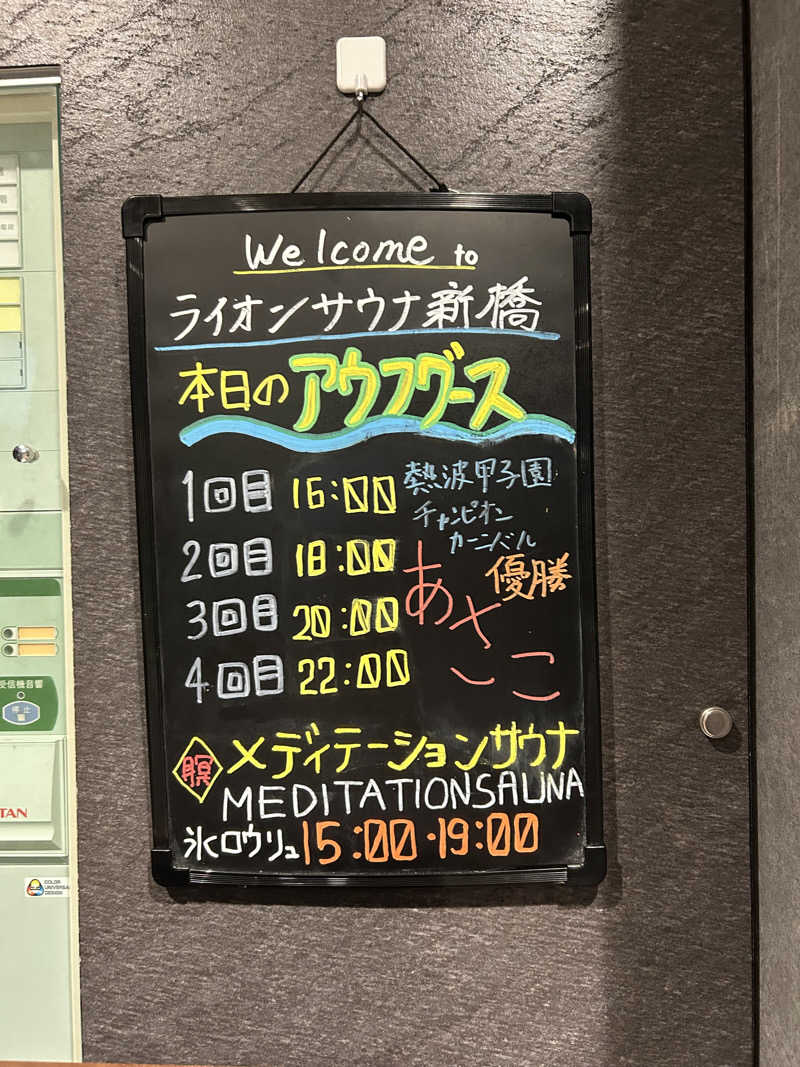 Welcome to
ライオンサウナ新橋
本日のアウフグース
1回目 16:00
2回目 18:00
3回目 20:00
4回目 22:00
熱波甲子園
チャンピオン
カーニバル
優勝
あさこ
瞑 メディテーションサウナ
MEDITATIONSAUNA
氷ロウリュ 15:00・19:00
受信機音響
停止
TAN
COLOR
UNIVERSAL
DESIGN